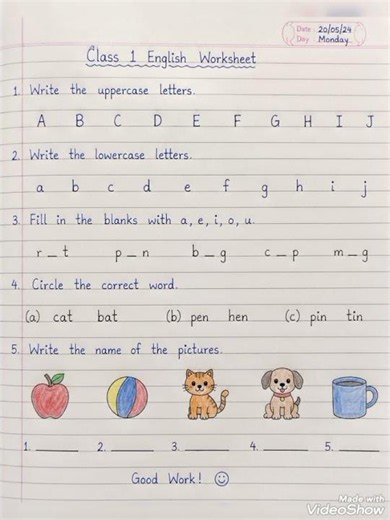 Date : 20/05/24
Day : Monday
Class 1 English Worksheet
1. Write the uppercase letters.
A B C D E F G H I J
2. Write the lowercase letters.
a b c d e f g h i j
3. Fill in the blanks with a, e, i, o, u.
r _ t p _ n b _ g c _ p m _ g
4. Circle the correct word.
(a) cat bat (b) pen hen (c) pin tin
5. Write the name of the pictures.
1. ______ 2. ______ 3. ______ 4. ______ 5. ______
Good Work! ☺
Made with
VideoShow